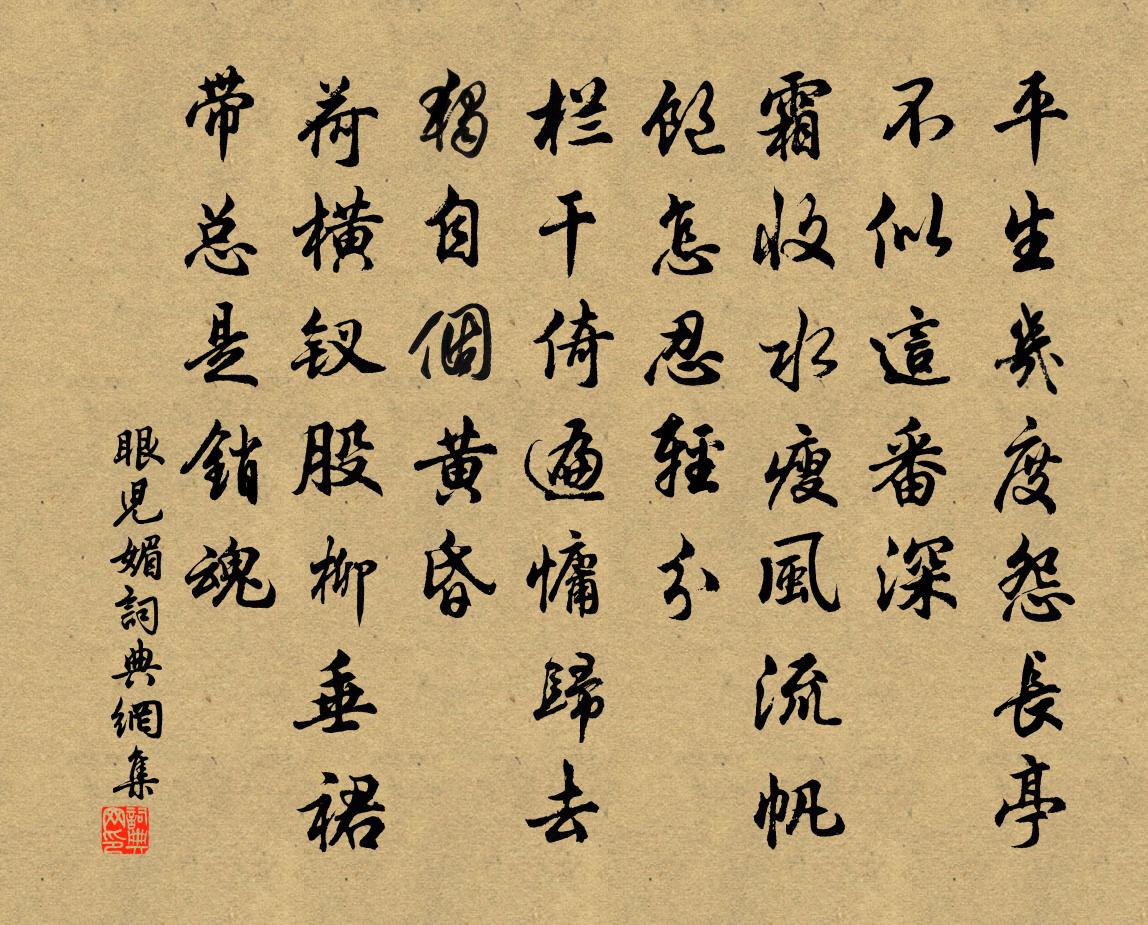 平生幾度怨長亭
不似這番深
霜收水瘦風流帆
飽怎忍輕分
栏干倚遍慵歸去
獨自個黃昏
荷橫钗股柳垂裙
带总是銷魂
眼兒媚詞典網集
詞典网印